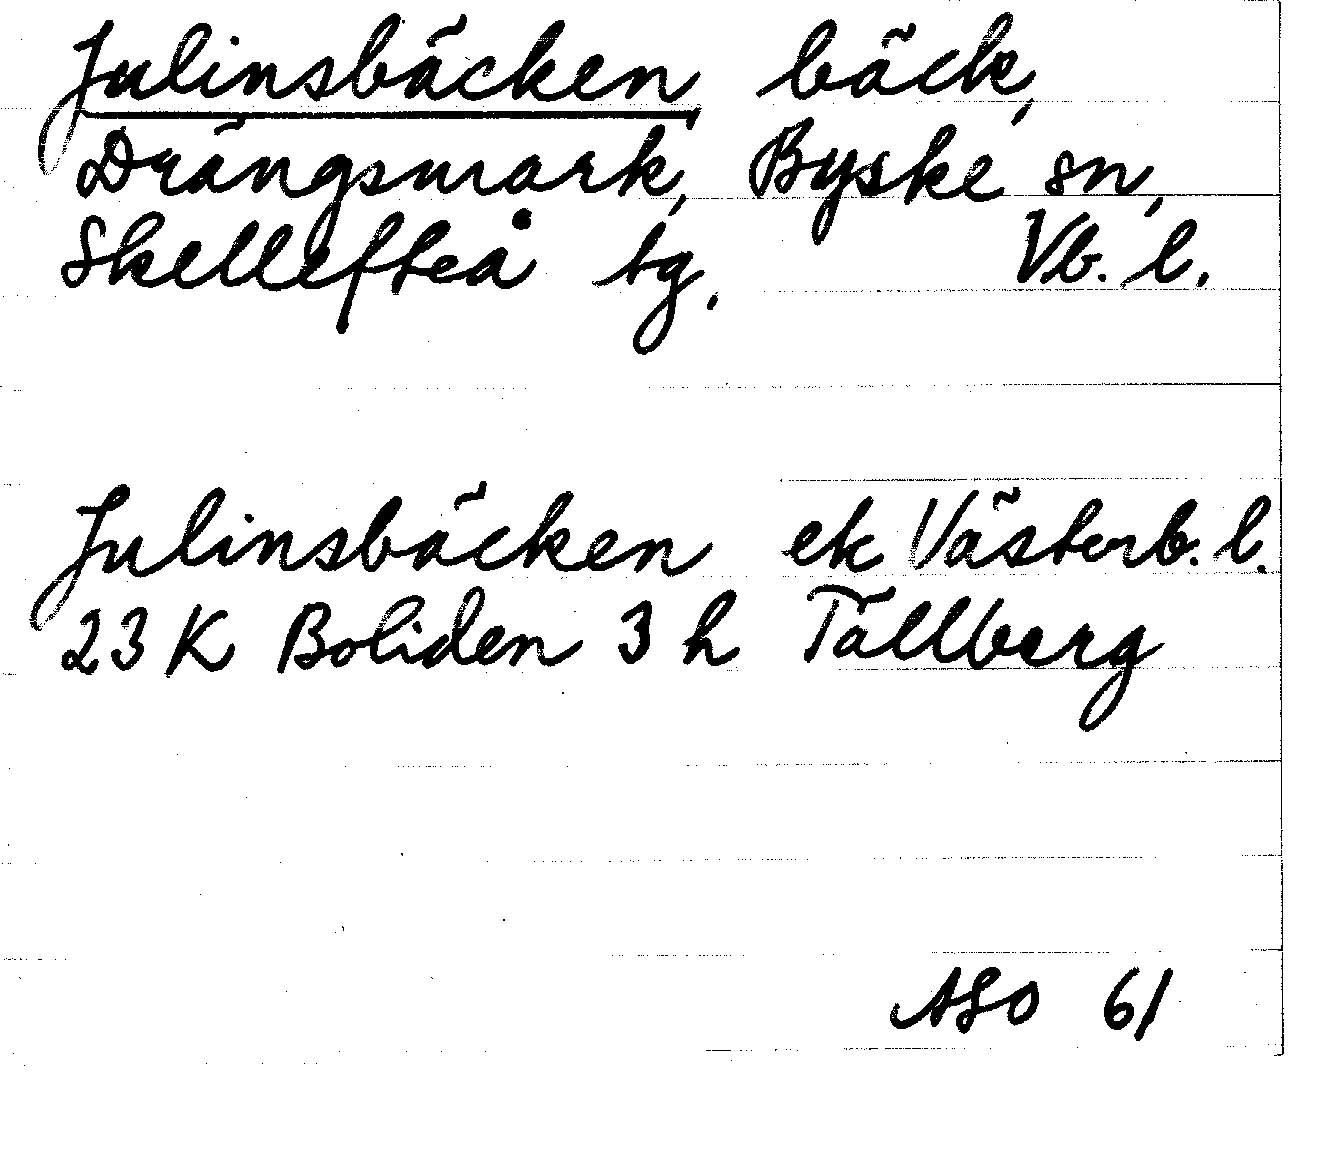 Julinsbäcken bäck,
Drängsmark, Byske sn,
Skellefteå tg. Vb. l.
Julinsbäcken ek Västerb. l.
23 K Boliden 3 h Tällberg
ASO 61